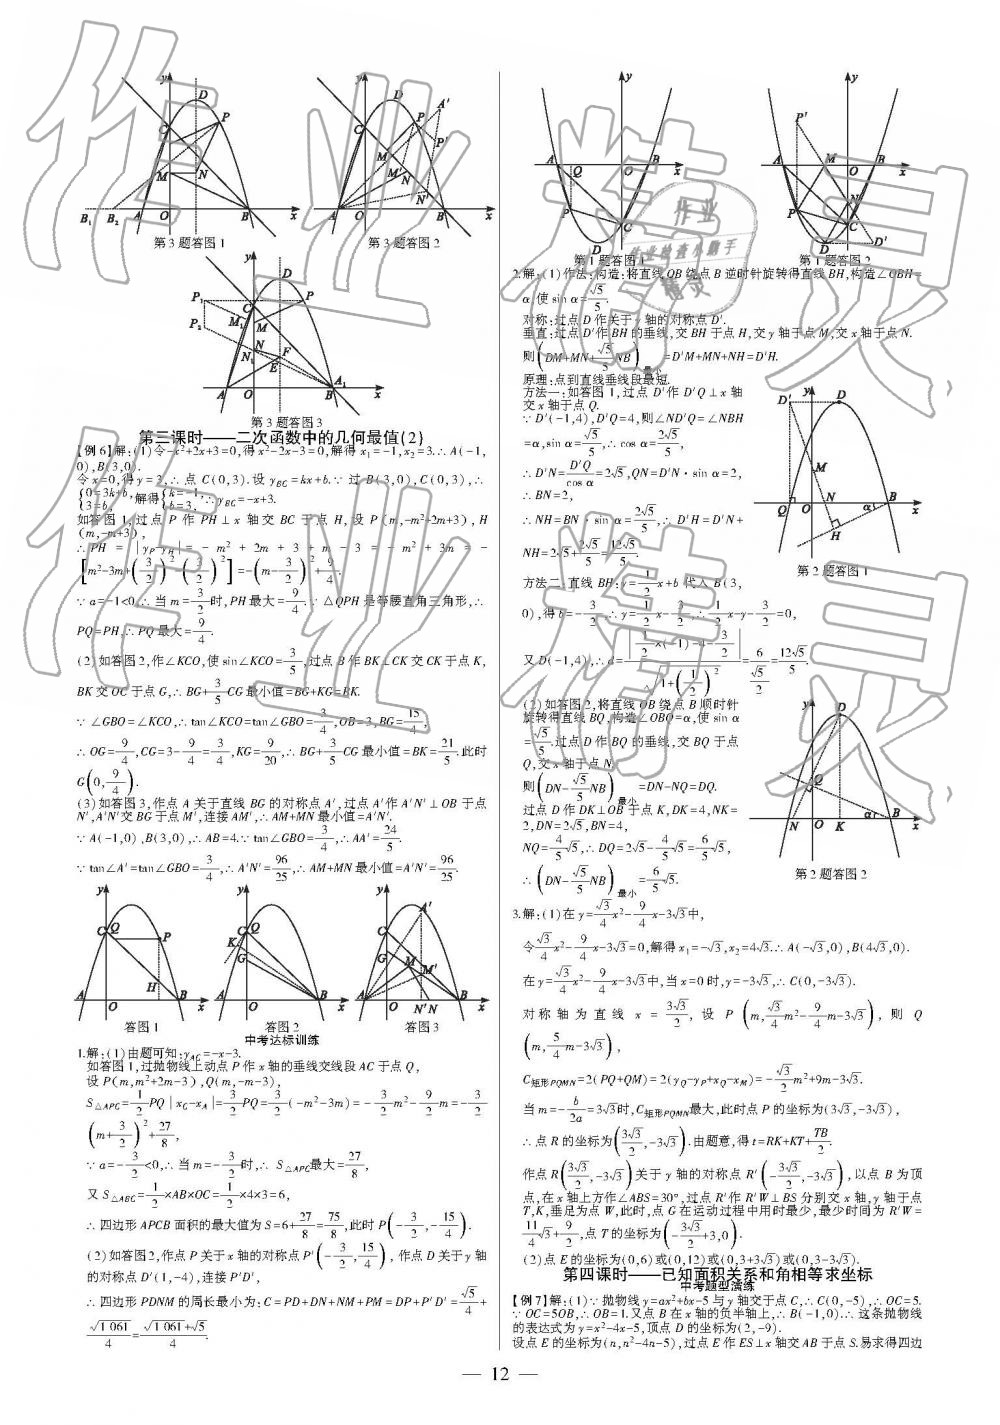 第3题答图1
第3题答图2
第3题答图3
第三课时——二次函数中的几何最值(2)
【例6】解:(1)令-x²+2x+3=0,得x²-2x-3=0,解得x₁=-1,x₂=3.∴A(-1,
0),B(3,0).
令x=0,得y=3,∴点C(0,3).设y_BC=kx+b.∵过B(3,0),C(0,3),∴
{0=3k+b, 3=b, 解得{k=-1, b=3, ∴y_BC=-x+3.
如答图1,过点P作PH⊥x轴交BC于点H,设P(m,-m²+2m+3),H
(m,-m+3),
∴PH=|y_P-y_H|=-m²+2m+3+m-3=-m²+3m=-
[m²-3m+(3/2)²-(3/2)²]=-(m-3/2)²+9/4.
∵a=-1<0,∴当m=3/2时,PH最大=9/4.∵△QPH是等腰直角三角形,∴
PQ=PH,∴PQ最大=9/4.
(2)如答图2,作∠KCO,使sin∠KCO=3/5,过点B作BK⊥CK交CK于点K,
BK交OC于点G,∴BG+3/5CG最小值=BG+KG=BK.
∵∠GBO=∠KCO,∴tan∠KCO=tan∠GBO=3/4,OB=3,BG=15/4,
∴OG=9/4,CG=3-9/4=3/4,KG=9/20,∴BG+3/5CG最小值=BK=21/5.此时
G(0,9/4).
(3)如答图3,作点A关于直线BG的对称点A′,过点A′作A′N′⊥OB于点
N′,A′N′交BG于点M′,连接AM′,∴AM+MN最小值=A′N′.
∵A(-1,0),B(3,0),∴AB=4.∵tan∠GBO=3/4,∴AA′=24/5.
∵tan∠A′=tan∠GBO=3/4,∴A′N′=96/25,∴AM+MN最小值=A′N′=96/25.
答图1
答图2
答图3
中考达标训练
1.解:(1)由题可知:y_AC=-x-3.
如答图1,过抛物线上动点P作x轴的垂线交线段AC于点Q,
设P(m,m²+2m-3),Q(m,-m-3),
S△APC=1/2PQ|x_C-x_A|=3/2PQ=3/2(-m²-3m)=-3/2m²-9/2m=-3/2
(m+3/2)²+27/8,
∵a=-3/2<0,∴当m=-3/2时,∴S△APC最大=27/8,
又S△ABC=1/2×AB×OC=1/2×4×3=6,
∴四边形APCB面积的最大值为S=6+27/8=75/8,此时P(-3/2,-15/4).
(2)如答图2,作点P关于x轴的对称点P′(-3/2,15/4),作点D关于y轴
的对称点D′(1,-4),连接P′D′,
∴四边形PDNM的周长最小为:C=PD+DN+NM+PM=DP+P′D′=√5/4+
√1061/4=(√1061+√5)/4.
第1题答图1
第1题答图2
2.解:(1)作法:构造:将直线OB绕点B逆时针旋转得直线BH,构造∠OBH=
α,使sin α=√5/5.
对称:过点D作关于y轴的对称点D′.
垂直:过点D′作BH的垂线,交BH于点H,交y轴于点M,交x轴于点N.
则(DM+MN+√5/5NB)最小=D′M+MN+NH=D′H.
原理:点到直线垂线段最短.
方法一:如答图1,过点D′作D′Q⊥x轴
交x轴于点Q.
∵D′(-1,4),D′Q=4,则∠ND′Q=∠NBH
=α,sin α=√5/5,∴cos α=2√5/5,
∴D′N=D′Q/cos α=2√5,QN=D′N·sin α=2,
∴BN=2,
∴NH=BN·sin α=2√5/5,∴D′H=D′N+
NH=2√5+2√5/5=12√5/5.
第2题答图1
方法二:直线BH:y=1/2x+b代入B(3,
0),得b=-3/2,∴y=1/2x-3/2,∴1/2x-y-3/2=0,
又D(-1,4),∴d=|1/2×(-1)-4-3/2|/√(1+(1/2)²)=6/(√5/2)=12√5/5.
(2)如答图2,将直线OB绕点B顺时针
旋转得直线BQ,构造∠OBQ=α,使sin α
=√5/5.过点D作BQ的垂线,交BQ于点
Q,交x轴于点N.
则(DN-√5/5NB)最小=DN-NQ=DQ.
过点D作DK⊥OB于点K,DK=4,NK=
2,DN=2√5,BN=4,
NQ=4/5√5,∴DQ=2√5-4/5√5=6/5√5,
∴(DN-√5/5NB)最小=6/5√5.
第2题答图2
3.解:(1)在y=√3/4x²-9/4x-3√3中,
令√3/4x²-9/4x-3√3=0,解得x₁=-√3,x₂=4√3.∴A(-√3,0),B(4√3,0).
在y=√3/4x²-9/4x-3√3中,当x=0时,y=-3√3,∴C(0,-3√3).
对称轴为直线x=3√3/2,设P(m,√3/4m²-9/4m-3√3),则Q
(m,5/4m-3√3),
C矩形PQMN=2(PQ+QM)=2(y_Q-y_P+x_Q-x_M)=-√3/2m²+9m-3√3.
当m=-b/2a=3√3时,C矩形PQMN最大,此时点P的坐标为(3√3,-3√3),
∴点R的坐标为(3√3/2,-3√3).由题意,得t=RK+KT+TB/2.
作点R(3√3/2,-3√3)关于y轴的对称点R′(-3√3/2,-3√3),以点B为顶
点,在x轴上方作∠ABS=30°,过点R′作R′W⊥BS分别交x轴,y轴于点
T,K,垂足为点W,此时,点G在运动过程中用时最少,最少时间为R′W=
11/4√3+9/2,点T的坐标为(-3√3/2+3,0).
(2)点E的坐标为(0,6)或(0,12)或(0,3+3√3)或(0,3-3√3).
第四课时——已知面积关系和角相等求坐标
中考题型演练
【例7】解:(1)∵抛物线y=ax²+bx-5与y轴交于点C,∴C(0,-5),∴OC=5.
∵OC=5OB,∴OB=1.又点B在x轴的负半轴上,∴B(-1,0).∴这条抛物线
的表达式为y=x²-4x-5,顶点D的坐标为(2,-9).
设点E的坐标为(n,n²-4n-5),过点E作ES⊥x轴交AB于点S.易求得四边
— 12 —